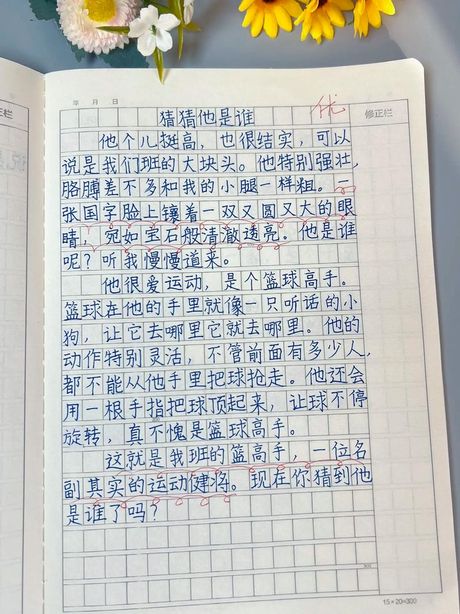 年 月 日
优
修正栏
猜猜他是谁
他个儿挺高，也很结实，可以
说是我们班的大块头。他特别强壮，
胳膊差不多和我的小腿一样粗。一
张国字脸上镶着一双又圆又大的眼
睛，宛如宝石般清澈透亮。他是谁
呢？听我慢慢道来。
他很爱运动，是个篮球高手。
篮球在他的手里就像一只听话的小
狗，让它去哪里它就去哪里。他的
动作特别灵活，不管前面有多少人，
都不能从他手里把球抢走。他还会
用一根手指把球顶起来，让球不停
旋转，真不愧是篮球高手。
这就是我班的篮高手，一位名
副其实的运动健将。现在你猜到他
是谁了吗？
300
15×20=300